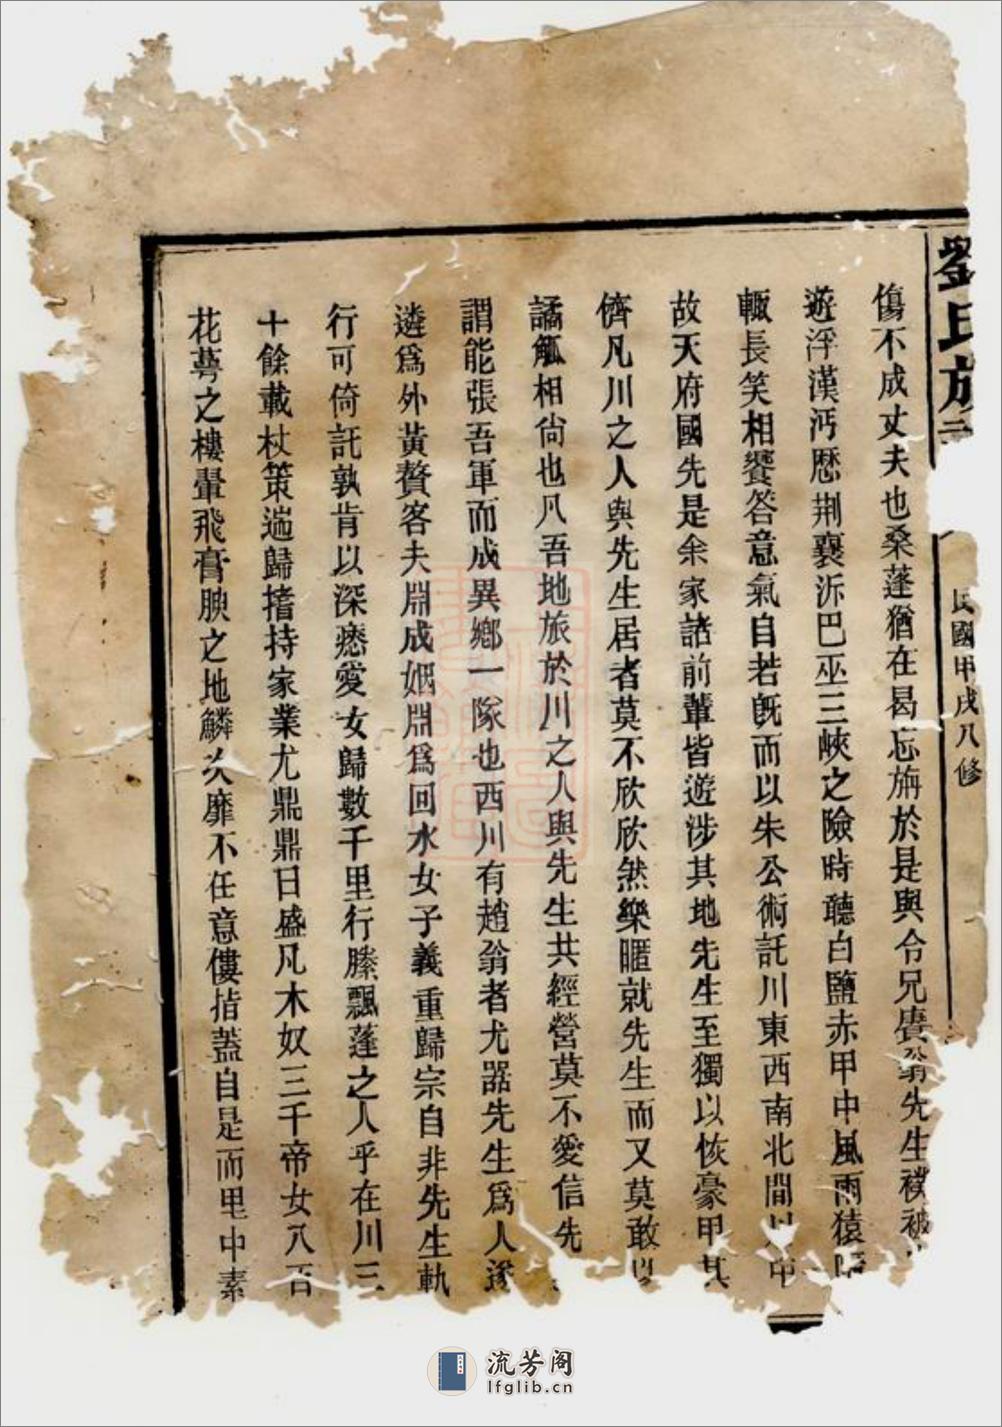 劉氏族
民國甲戌八修
傷不成丈夫也桑蓬猶在曷忘旃於是與令兄賡翁先生襆被
遊浮漢沔歷荆襄泝巴巫三峽之險時聽白鹽赤甲中風雨猿
輒長笑相饗答意氣自若既而以朱公術託川東西南北間川中
故天府國先是余家諸前輩皆遊涉其地先生至獨以恢豪甲其
儕凡川之人與先生居者莫不欣欣然樂暱就先生而又莫敢以
譎觚相尙也凡吾地旅於川之人與先生共經營莫不愛信先
謂能張吾軍而成異鄉一隊也西川有趙翁者尤器先生爲人遂
遴爲外黃贅客夫淵成姻淵爲回水女子義重歸宗自非先生軌
行可倚託孰肯以深憄愛女歸數千里行縢飄蓬之人乎在川三
十餘載杖策遄歸搘持家業尤鼎鼎日盛凡木奴三千帝女八百
花蕚之樓翬飛膏腴之地鱗次靡不任意僂指蓋自是而里中素
流芳阁
lfglib.cn